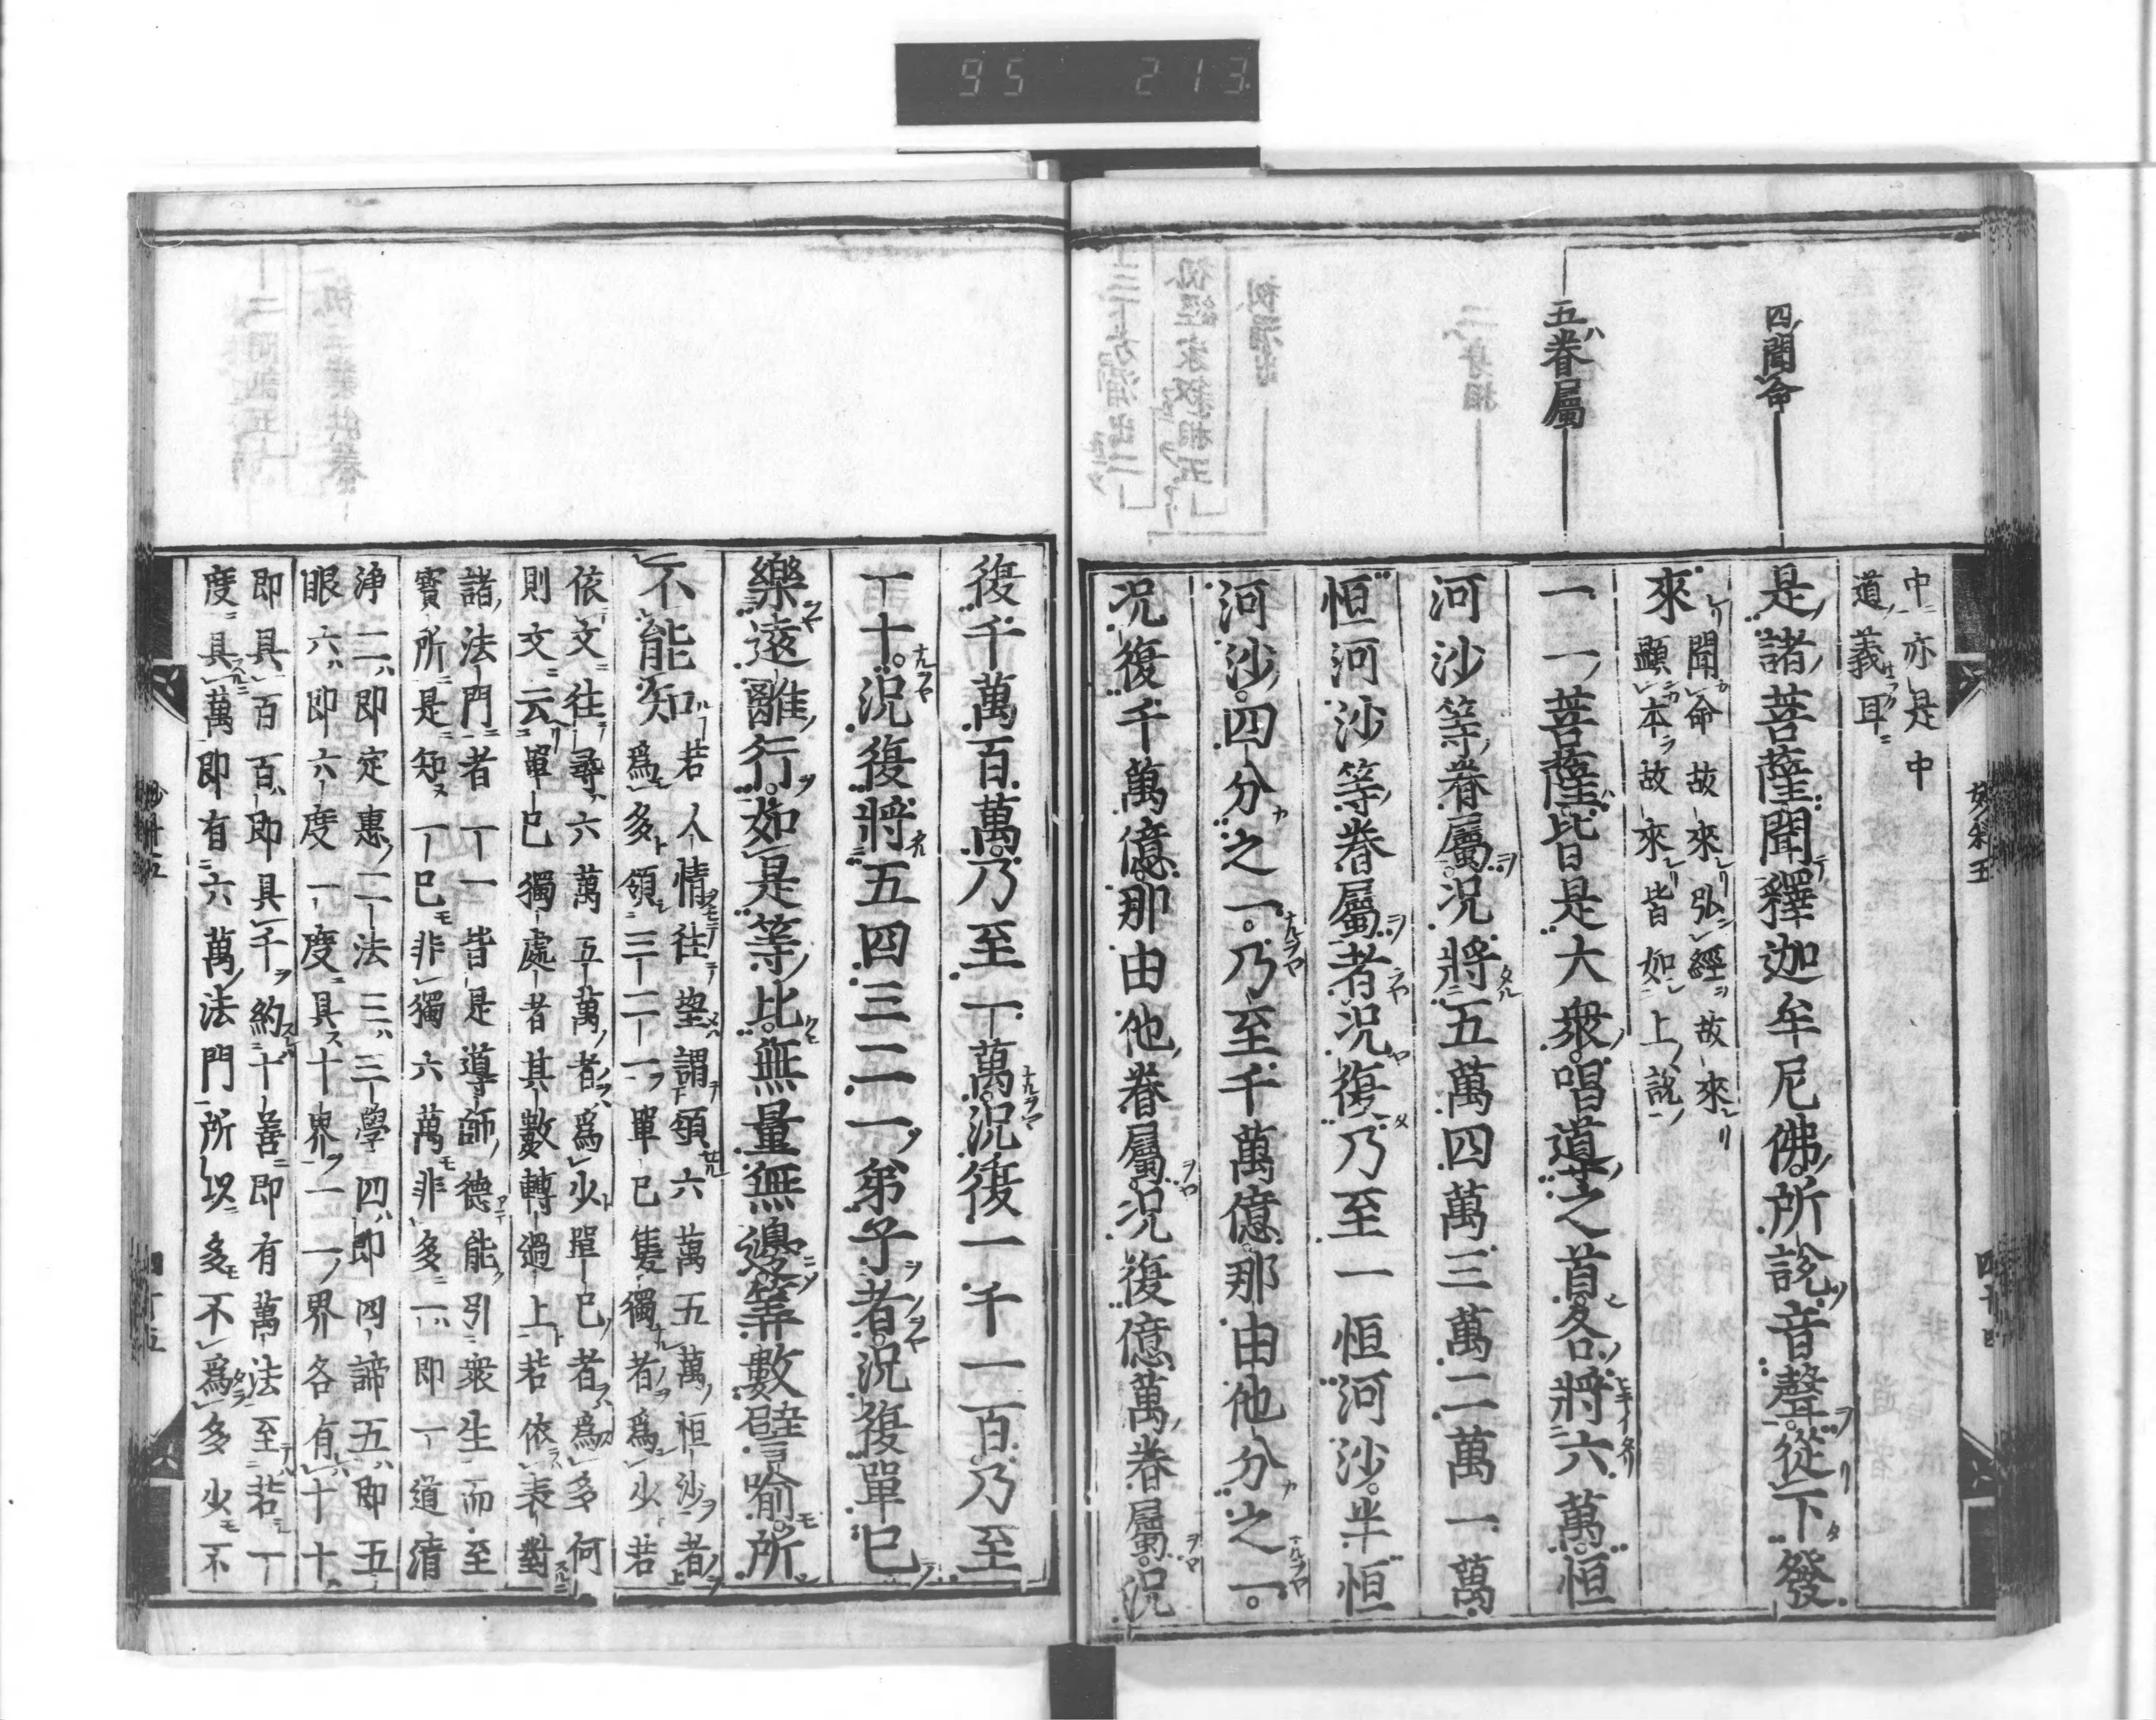 95 213
四聞命
五眷屬
中亦是中
道義耳
是諸菩薩聞釋迦牟尼佛所說音聲從下發
來
聞命故來弘經故來
顯本故來皆如上說
一一菩薩皆是大衆唱導之首各將六萬恒
河沙等眷屬況將五萬四萬三萬二萬一萬
恒河沙等眷屬者況復乃至一恒河沙半恒
河沙四分之一乃至千萬億那由他分之一
況復千萬億那由他眷屬況復億萬眷屬況
復千萬百萬乃至一萬況復一千一百乃至
一十況復將五四三二一弟子者況復單已
樂遠離行如是等比無量無邊筭數譬喻所
不能知
若人情往望謂領六萬五萬恒沙者
爲多領三二一單已隻獨者爲少若
依文往尋六萬五萬者爲少單已者爲多何
則文云單已獨處者其數轉過上若依表對
諸法門者一一皆是導師德能引衆生而至
寶所是知一已非獨六萬非多一即一道清
淨二即定惠二法三三學四即四諦五即五
眼六即六度一度具十界一一界各有十十
即具百百即具千約十善即有萬法至若一
度具萬即有六萬法門所以多不爲多少不